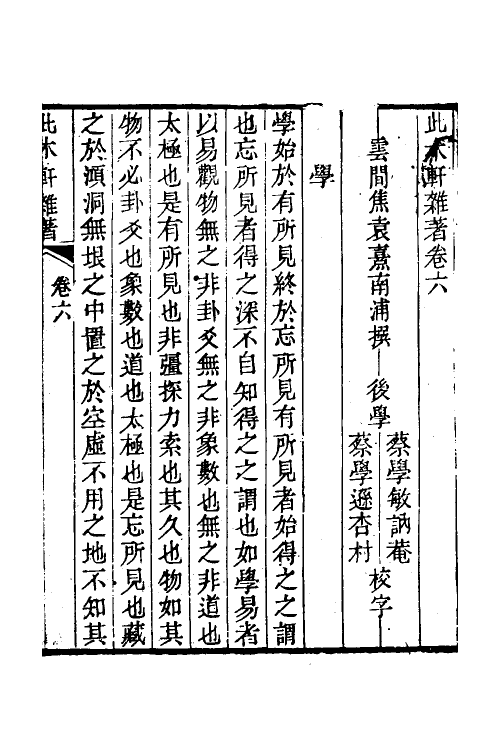 此木軒雜著卷六
雲間焦袁熹南浦撰 後學
蔡學敏訥菴
蔡學遜杏村
校字
學
學始於有所見終於忘所見有所見者始得之之謂
也忘所見者得之深不自知得之之謂也如學易者
以易觀物無之非卦爻無之非象數也無之非道也
太極也是有所見也非彊探力索也其久也物如其
物不必卦爻也象數也道也太極也是忘所見也藏
之於澒洞無垠之中置之於空虛不用之地不知其
此木軒雜著
卷六